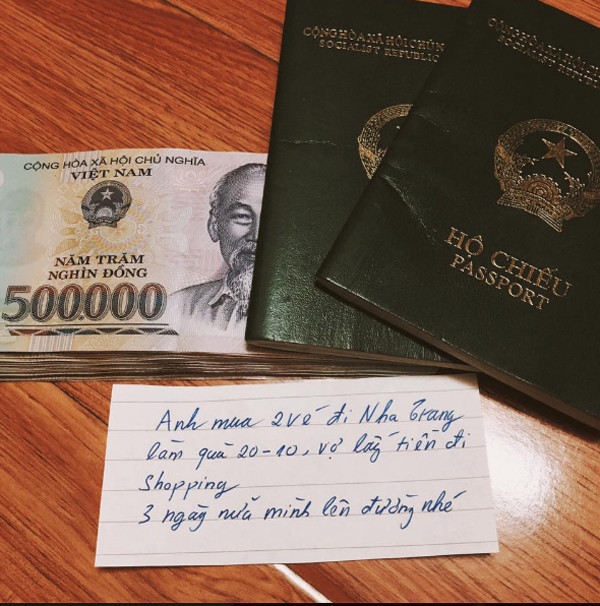 CỘNG HÒA XÃ HỘI CHỦ NGHĨA
VIỆT NAM
NĂM TRĂM
NGHÌN ĐỒNG
500.000
CỘNG HÒA XÃ HỘI CHỦ
SOCIALIST REPUBLIC
CỘNG HÒA XÃ HỘI
SOCIALIST
HỘ CHIẾU
PASSPORT
Anh mua 2 vé đi Nha Trang
làm quà 20-10, vợ lấy tiền đi
Shopping
3 ngày nữa mình lên đường nhé